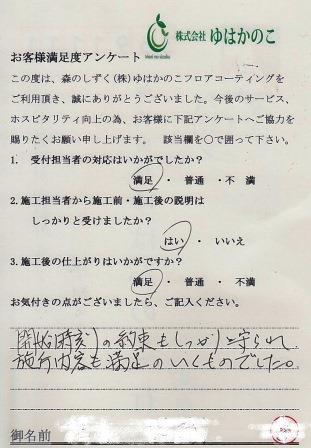 株式会社 ゆはかのこ
お客様満足度アンケート
この度は、森のしずく(株)ゆはかのこフロアコーティングを
ご利用頂き、誠にありがとうございました。今後のサービス、
ホスピタリティ向上の為、お客様に下記アンケートへご協力を
賜りたくお願い申し上げます。 該当欄を○で囲って下さい。
1. 受付担当者の対応はいかがでしたか?
満足 ・ 普通 ・ 不満
2. 施工担当者から施工前・施工後の説明は
しっかりと受けましたか?
はい ・ いいえ
3. 施工後の仕上がりはいかがですか?
満足 ・ 普通 ・ 不満
お気付きの点がございましたら、ご記入ください。
開始時刻の約束もしっかり守られ
施行内容も満足のいくものでした。
御名前